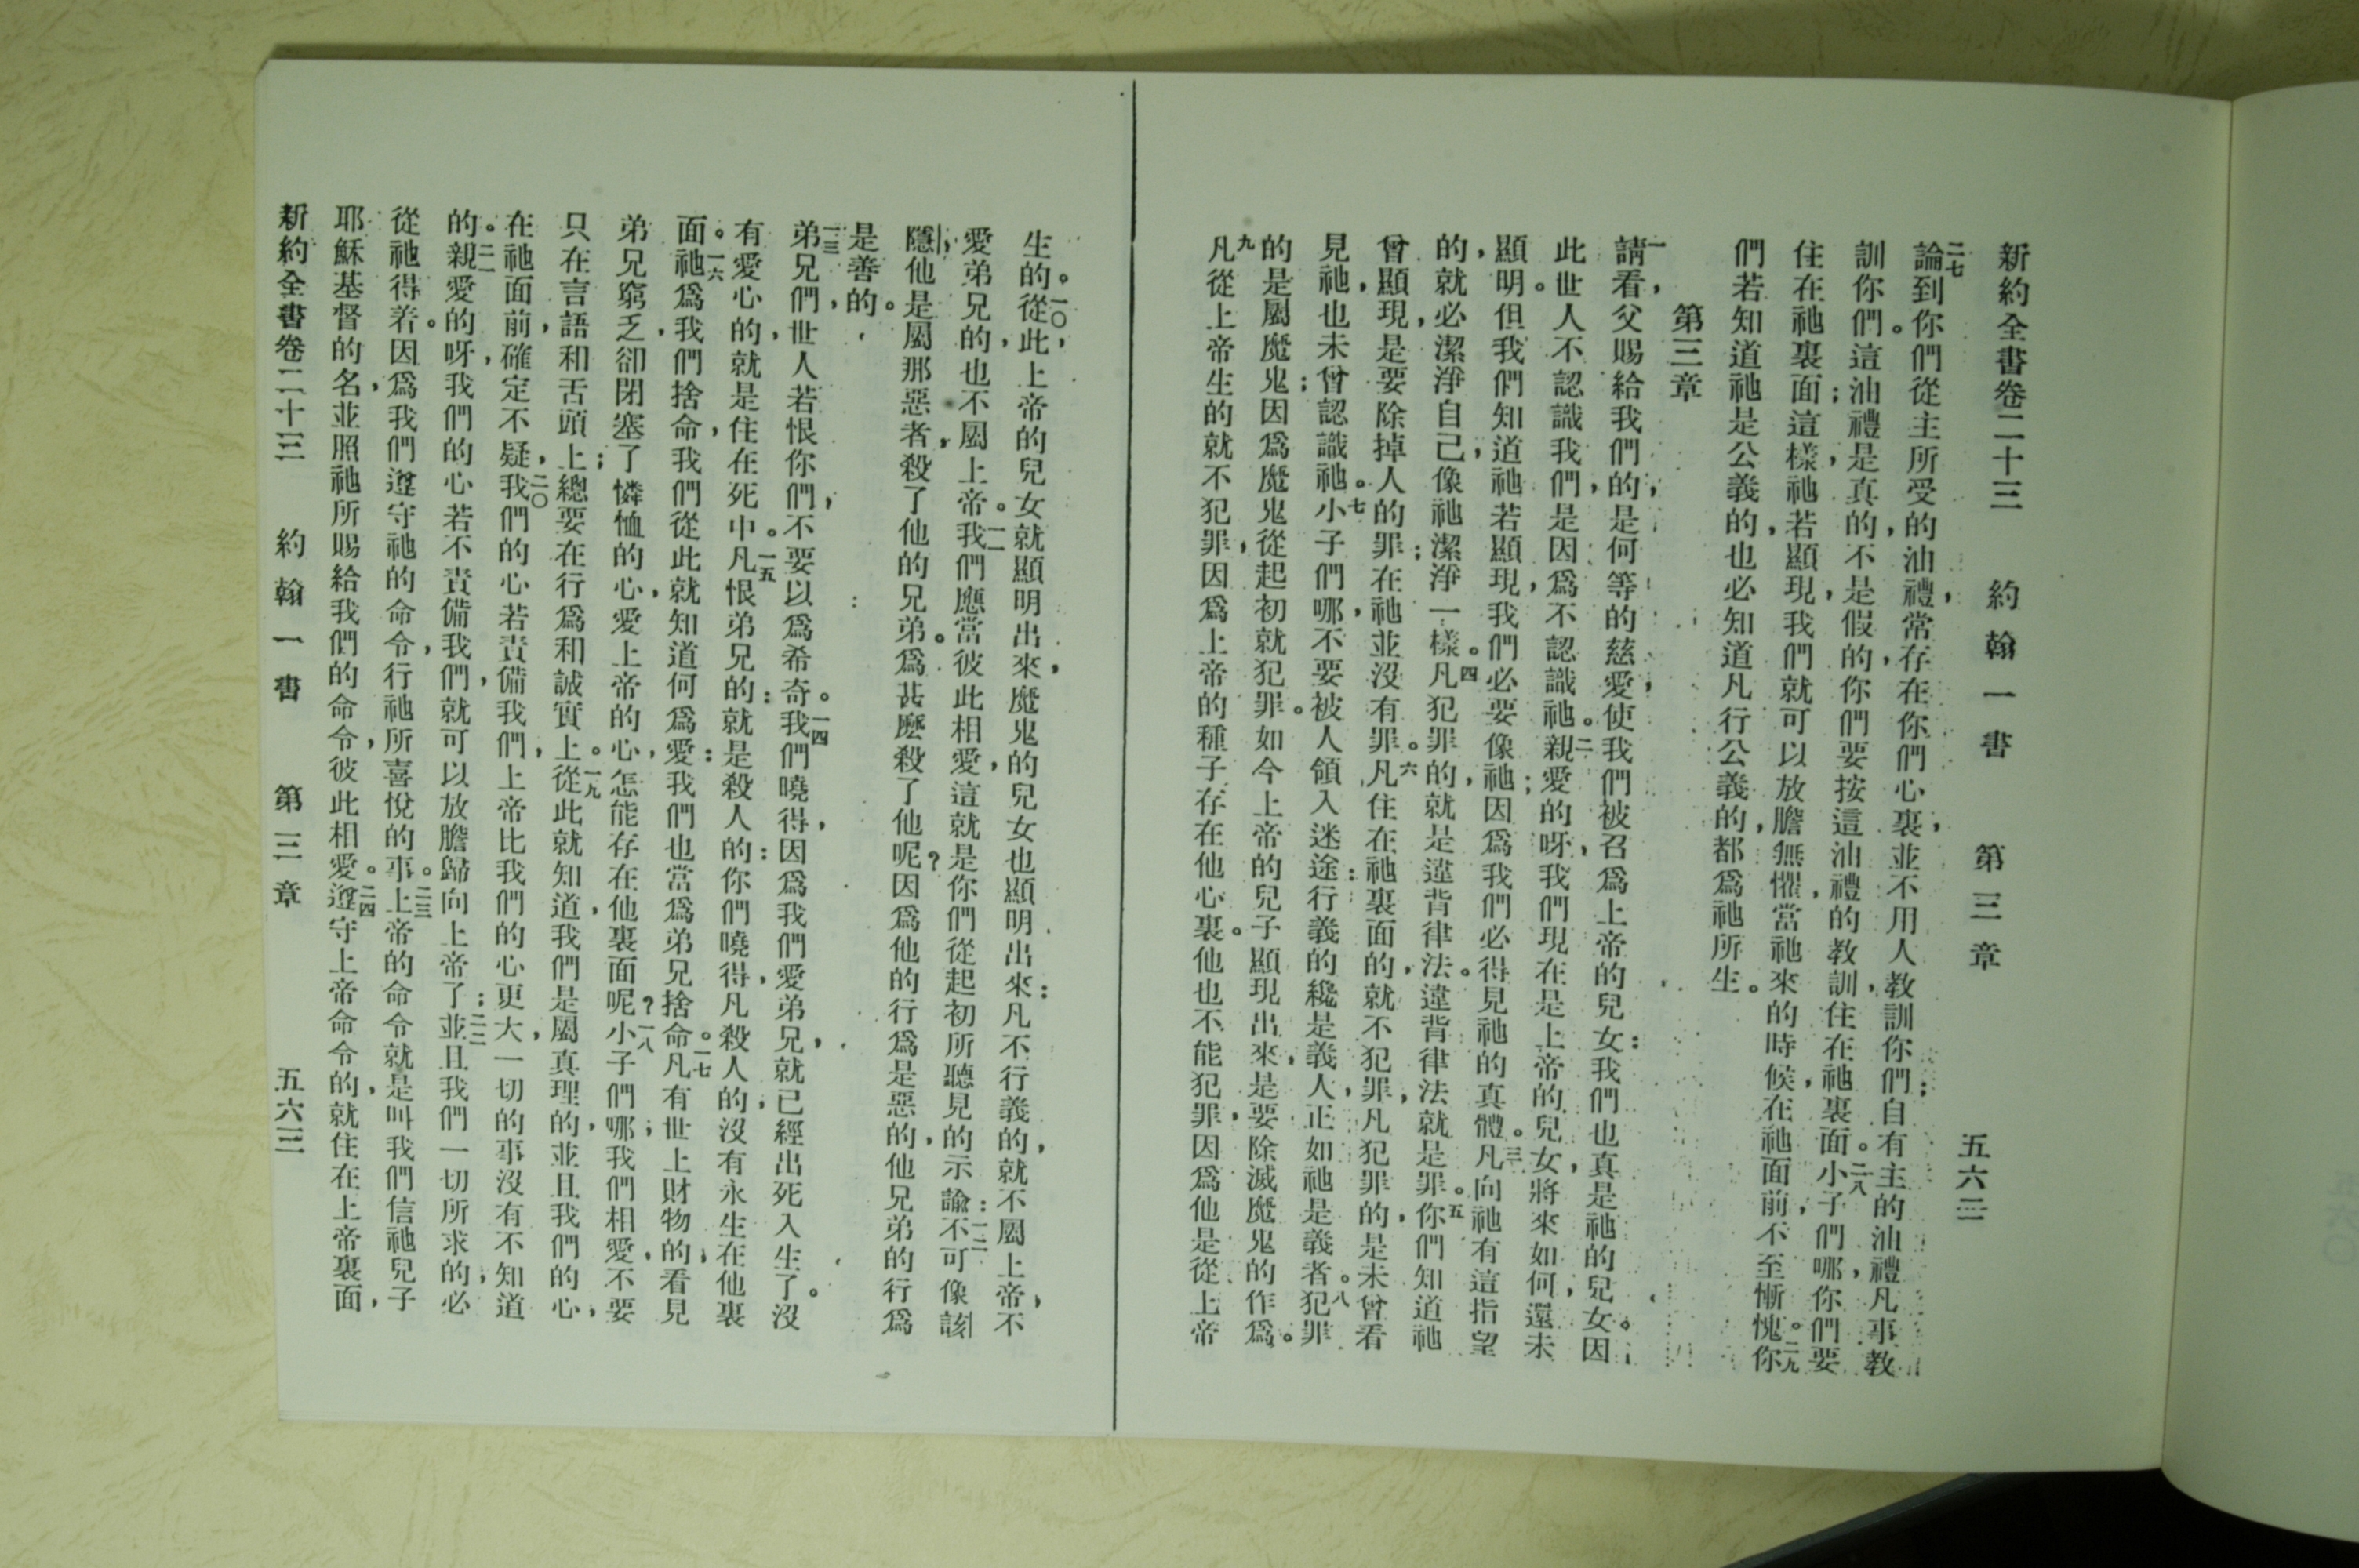 新約全書卷二十三 約翰一書 第三章 五六二
二七論到你們從主所受的油禮，常存在你們心裏，並不用人教訓你們；自有主的油禮，凡事教
訓你們。這油禮是真的，不是假的，你們要按這油禮的教訓，住在祂裏面。二八小子們哪，你們要
住在祂裏面；這樣，祂若顯現，我們就可以放膽無懼，當祂來的時候，在祂面前，不至慚愧。二九你
們若知道祂是公義的，也必知道凡行公義的，都爲祂所生。
第三章
一請看，父賜給我們的，是何等的慈愛，使我們被召爲上帝的兒女：我們也真是祂的兒女。因
此世人不認識我們，是因爲不認識祂。二親愛的呀，我們現在是上帝的兒女，將來如何，還未
顯明。但我們知道祂若顯現，我們必要像祂；因爲我們必得見祂的真體。三凡向祂有這指望
的，就必潔淨自己，像祂潔淨一樣。四凡犯罪的，就是違背律法。違背律法就是罪。五你們知道祂
曾顯現，是要除掉人的罪；在祂並沒有罪。六凡住在祂裏面的，就不犯罪，凡犯罪的，是未曾看
見祂，也未曾認識祂。七小子們哪，不要被人領入迷途：行義的纔是義人，正如祂是義者。八犯罪
的是屬魔鬼；因爲魔鬼從起初就犯罪。如今上帝的兒子顯現出來，是要除滅魔鬼的作爲。
九凡從上帝生的就不犯罪，因爲上帝的種子存在他心裏。他也不能犯罪，因爲他是從上帝
生的。一〇從此，上帝的兒女就顯明出來，魔鬼的兒女也顯明出來：凡不行義的，就不屬上帝，不
愛弟兄的，也不屬上帝。一一我們應當彼此相愛，這就是你們從起初所聽見的示諭：一二不可像該
隱，他是屬那惡者，殺了他的兄弟。爲甚麽殺了他呢？因爲他的行爲是惡的，他兄弟的行爲
是善的。
一三弟兄們，世人若恨你們，不要以爲希奇。一四我們曉得，因爲我們愛弟兄，就已經出死入生了。沒
有愛心的，就是住在死中。一五凡恨弟兄的：就是殺人的：你們曉得，凡殺人的，沒有永生在他裏
面。一六祂爲我們捨命，我們從此就知道何爲愛：我們也當爲弟兄捨命。一七凡有世上財物的，看見
弟兄窮乏，卻閉塞了憐恤的心，愛上帝的心，怎能存在他裏面呢？一八小子們哪；我們相愛，不要
只在言語和舌頭上；總要在行爲和誠實上。一九從此就知道，我們是屬真理的，並且我們的心，
在祂面前，確定不疑，二〇我們的心若責備我們，上帝比我們的心更大，一切的事沒有不知道
的。二一親愛的呀，我們的心若不責備我們，就可以放膽歸向上帝了；二二並且我們一切所求的，必
從祂得着。因爲我們遵守祂的命令，行祂所喜悅的事。二三上帝的命令就是叫我們信祂兒子
耶穌基督的名，並照祂所賜給我們的命令，彼此相愛。二四遵守上帝命令的，就住在上帝裏面，
新約全書卷二十三 約翰一書 第三章 五六三